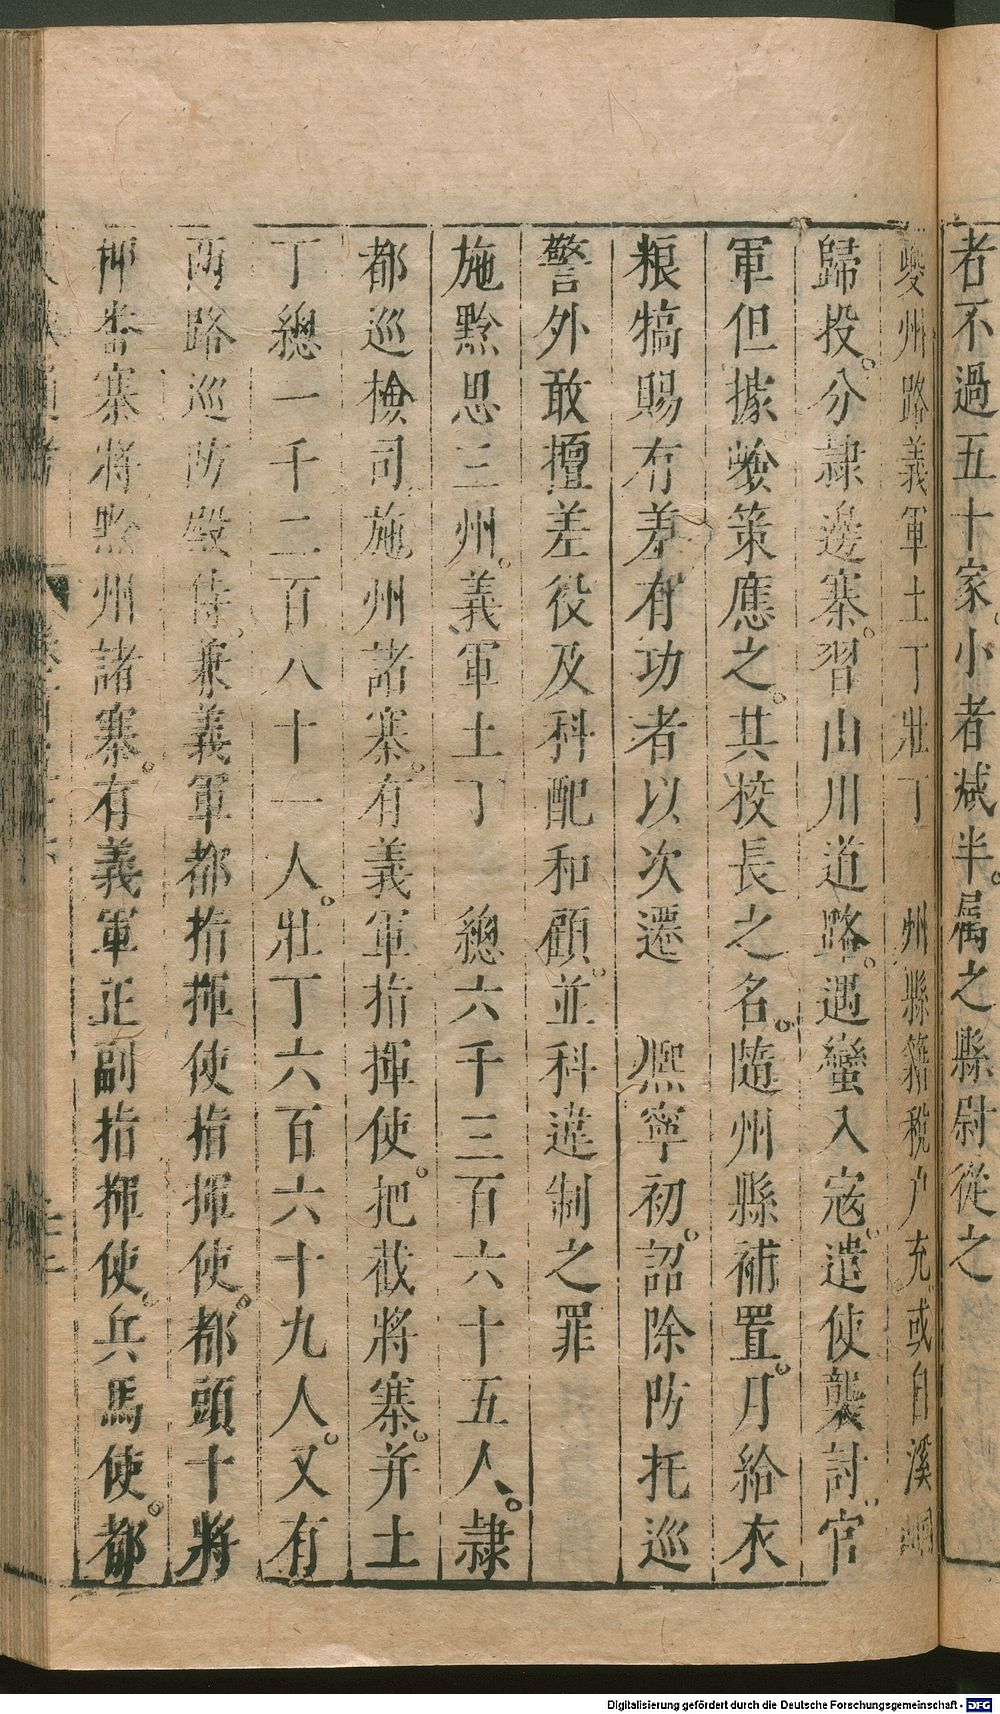 者不過五十家小者减半属之縣尉從之
夔州路義軍土丁壯丁　州縣籍税户充或自溪峒
歸投分隷邊寨習山川道路遇蠻入寇遣使襲討官
軍但據險策應之其校長之名隨州縣補置月給衣
粮犒賜有差有功者以次遷　熈寧初詔除防托巡
警外敢擅差役及科配和顧並科違制之罪
施黔思三州義軍土丁　總六千三百六十五人隷
都巡檢司施州諸寨有義軍指揮使把截將寨并土
丁總一千二百八十一人壯丁六百六十九人又有
西路巡防殿侍兼義軍都指揮使指揮使都頭十將
押番寨將黔州諸寨有義軍正副指揮使兵馬使都
Digitalisierung gefördert durch die Deutsche Forschungsgemeinschaft - DFG